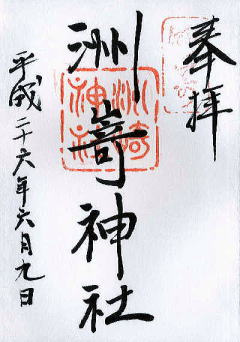 奉拝
洲嵜神社
洲崎神社
平成二十六年六月九日